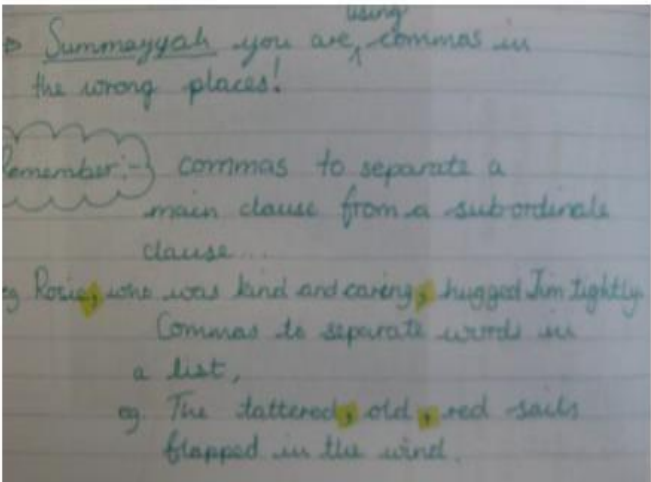 Summayyah you are using commas in
the wrong places!
Remember:- commas to separate a
main clause from a subordinate
clause...
eg Rosie, who was kind and caring, hugged Jim tightly.
Commas to separate words in
a list,
eg The tattered, old, red sails
flapped in the wind.